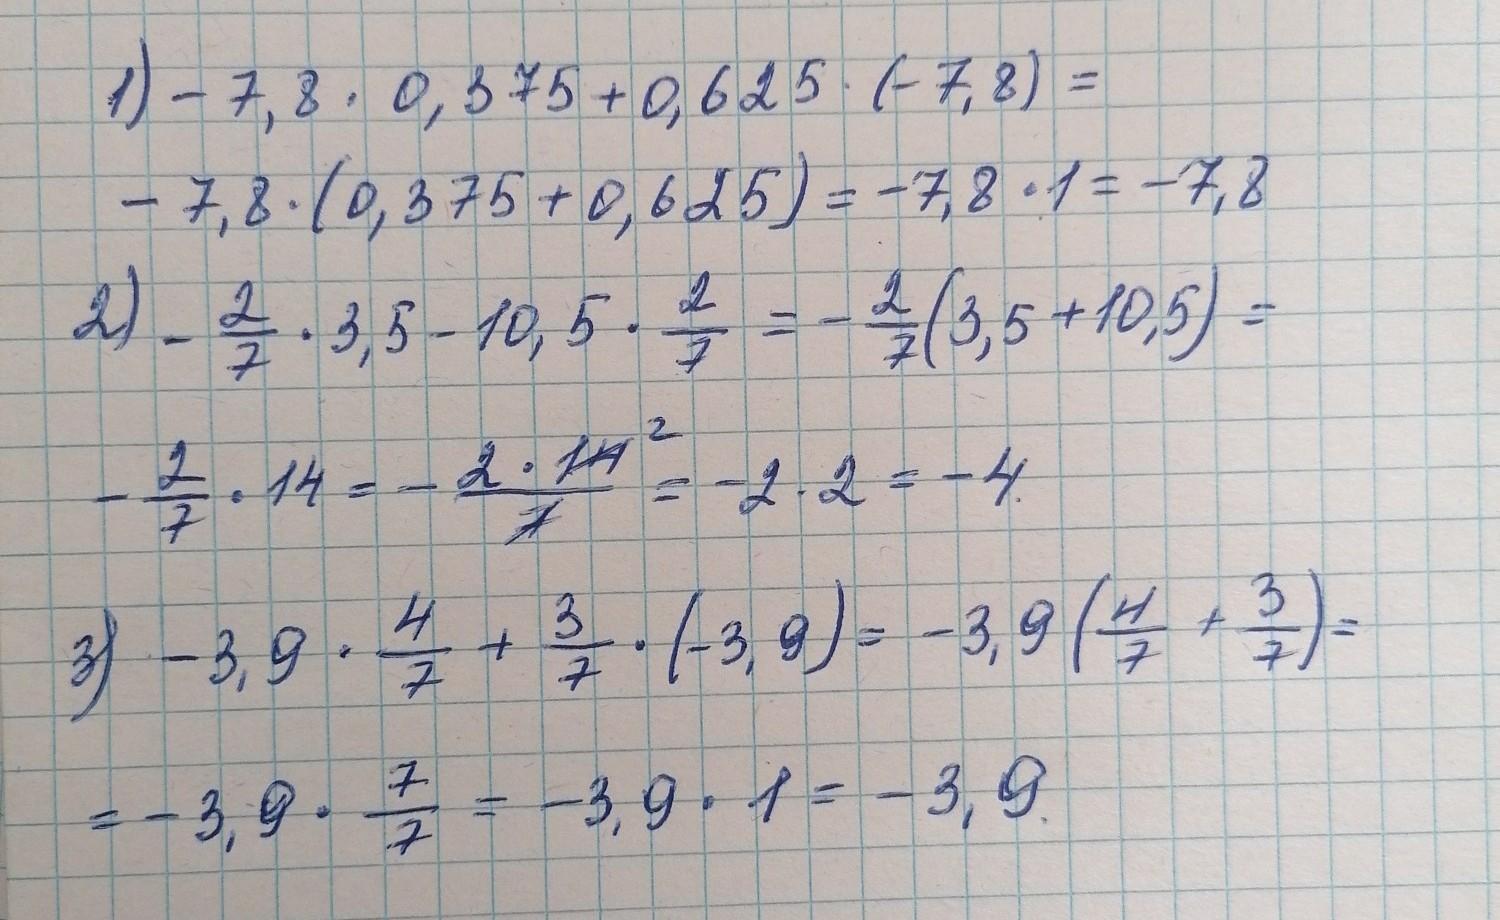 1) - 7,8 · 0,375 + 0,625 · (- 7,8) =
- 7,8 · (0,375 + 0,625) = - 7,8 · 1 = - 7,8
2) - 2/7 · 3,5 - 10,5 · 2/7 = - 2/7 (3,5 + 10,5) =
- 2/7 · 14 = - 2 · 14²/7 = - 2 · 2 = - 4.
3) - 3,9 · 4/7 + 3/7 · (- 3,9) = - 3,9 (4/7 + 3/7) =
= - 3,9 · 7/7 = - 3,9 · 1 = - 3,9.